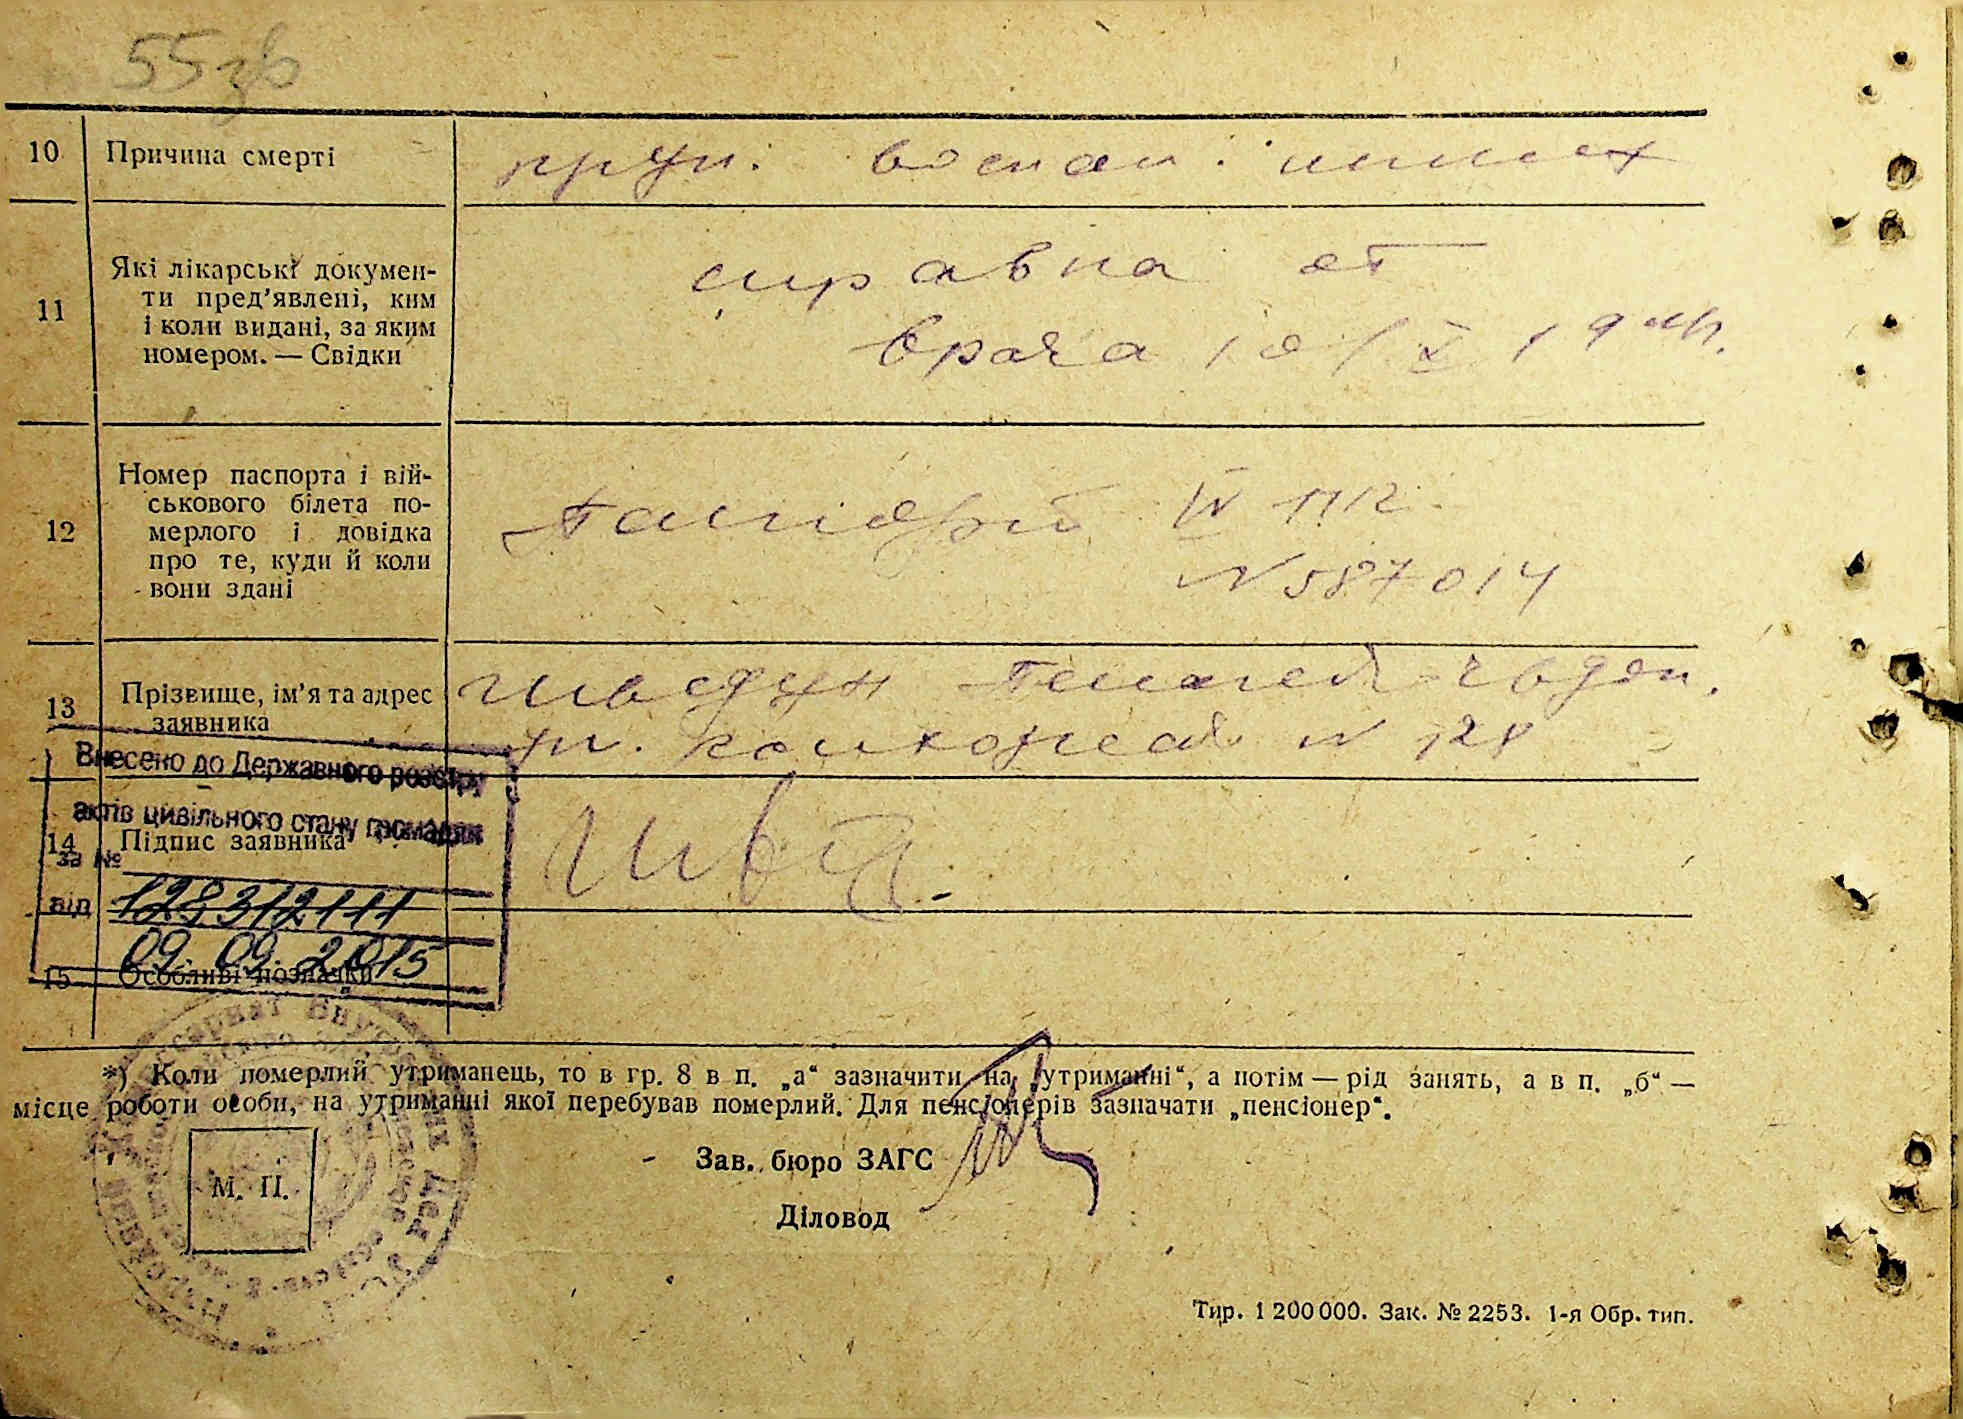 55
10 Причина смерті круп. воспал. легких
11 Які лікарські докумен-
ти пред'явлені, ким
і коли видані, за яким
номером. — Свідки
справка от
врача 10/X
12 Номер паспорта і вій-
ськового білета по-
мерлого і довідка
про те, куди й коли
вони здані
Паспорт IV
N 587014
13 Прізвище, ім'я та адрес
заявника
N
Внесено до Державного реєстру
актів цивільного стану громадян
14 Підпис заявника
за №
від 128312111
09.09.2015
15 Особливі позначки
*) Коли померлий утриманець, то в гр. 8 в п. „а“ зазначити „на утриманні“, а потім — рід занять, а в п. „б“ —
місце роботи особи, на утриманні якої перебував померлий. Для пенсіонерів зазначати „пенсіонер“.
М. П.
Зав. бюро ЗАГС
Діловод
Тир. 1 200 000. Зак. № 2253. 1-я Обр. тип.